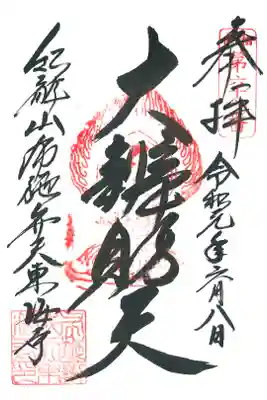 奉拝
令和元年六月八日
大辨財天
紅龍山布施弁天東海寺